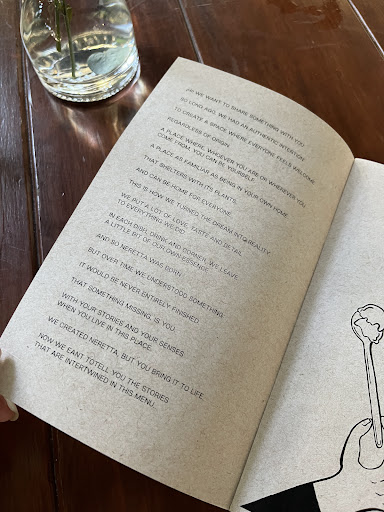 HI! WE WANT TO SHARE SOMETHING WITH YOU
SO LONG AGO, WE HAD AN AUTHENTIC INTENTION
TO CREATE A SPACE WHERE EVERYONE FEELS WELCOME
REGARDLESS OF ORIGIN.
A PLACE WHERE, WHOEVER YOU ARE OR WHEREVER YOU
COME FROM, YOU CAN BE YOURSELF.
A PLACE AS FAMILIAR AS BEING IN YOUR OWN HOME
THAT SHELTERS WITH ITS PLANTS,
AND CAN BE HOME FOR EVERYONE.
THIS IS HOW WE TURNED THE DREAM INTO REALITY.
WE PUT A LOT OF LOVE, TASTE AND DETAIL
TO EVERYTHING WE DID
IN EACH DISH, DRINK AND CORNER, WE LEAVE
A LITTLE BIT OF OUR OWN ESSENCE.
AND SO NERETTA WAS BORN.
BUT OVER TIME WE UNDERSTOOD SOMETHING.
IT WOULD BE NEVER ENTIRELY FINISHED.
THAT SOMETHING MISSING, IS YOU.
WITH YOUR STORIES ANG YOUR SENSES
WHEN YOU LIVE IN THIS PLACE.
WE CREATED NERETTA, BUT YOU BRING IT TO LIFE,
NOW WE EANT TOTELL YOU THE STORIES
THAT ARE INTERTWINED IN THIS MENU.